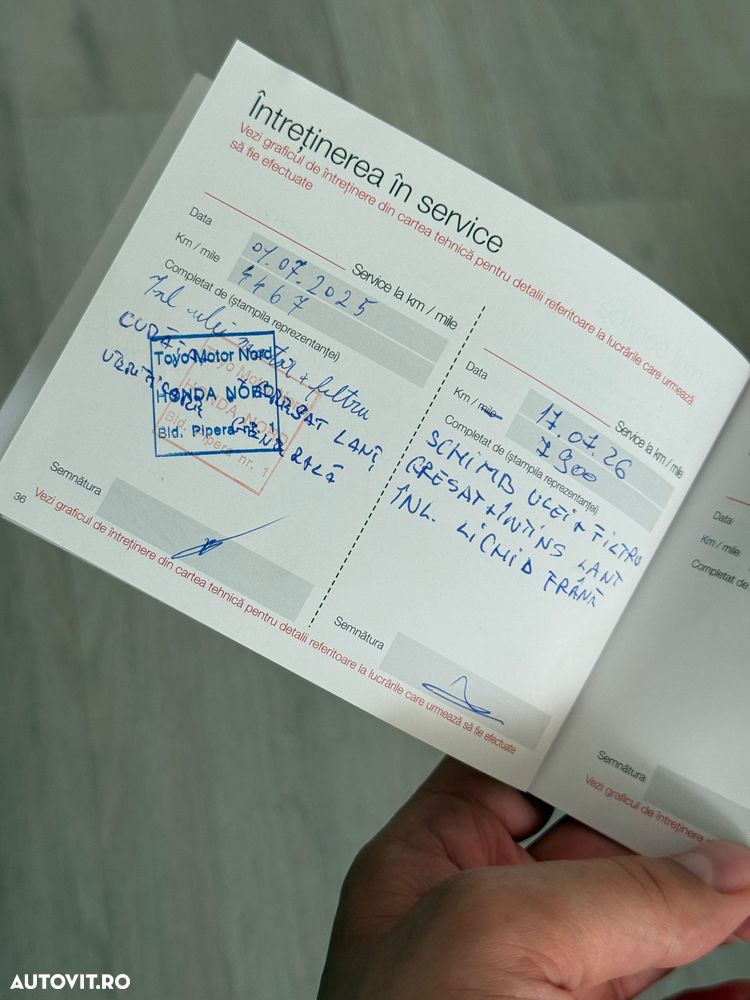 Întreținerea în service
Vezi graficul de întreținere din cartea tehnică pentru detalii referitoare la lucrările care urmează
să fie efectuate
Data
01.07.2025
Service la km / mile
Km / mile
4467
Completat de (ștampila reprezentanței)
Înl ulei motor + filtru
CURĂȚAT GRESAT LANȚ
VERIFICARE GENERALĂ
Toyo Motor Nord
HONDA NORD
Bld. Pipera nr. 1
Semnătura
36
Vezi graficul de întreținere din cartea tehnică pentru detalii referitoare la lucrările care urmează să fie efectuate
Data
17.07.26
Service la km / mile
Km / mile
7900
Completat de (ștampila reprezentanței)
SCHIMB ULEI + FILTRU
GRESAT + ÎNTINS LANȚ
ÎNL. LICHID FRÂNĂ
Semnătura
Data
Km / mile
Completat de
Semnătura
Vezi graficul de întreținere
AUTOVIT.RO